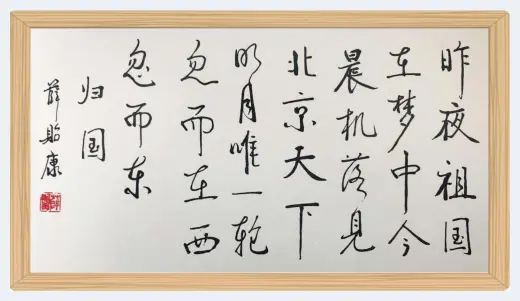 昨夜祖国
在梦中今
晨机落见
北京天下
明月唯一轮
忽而在西
忽而东
归国
薛贻康